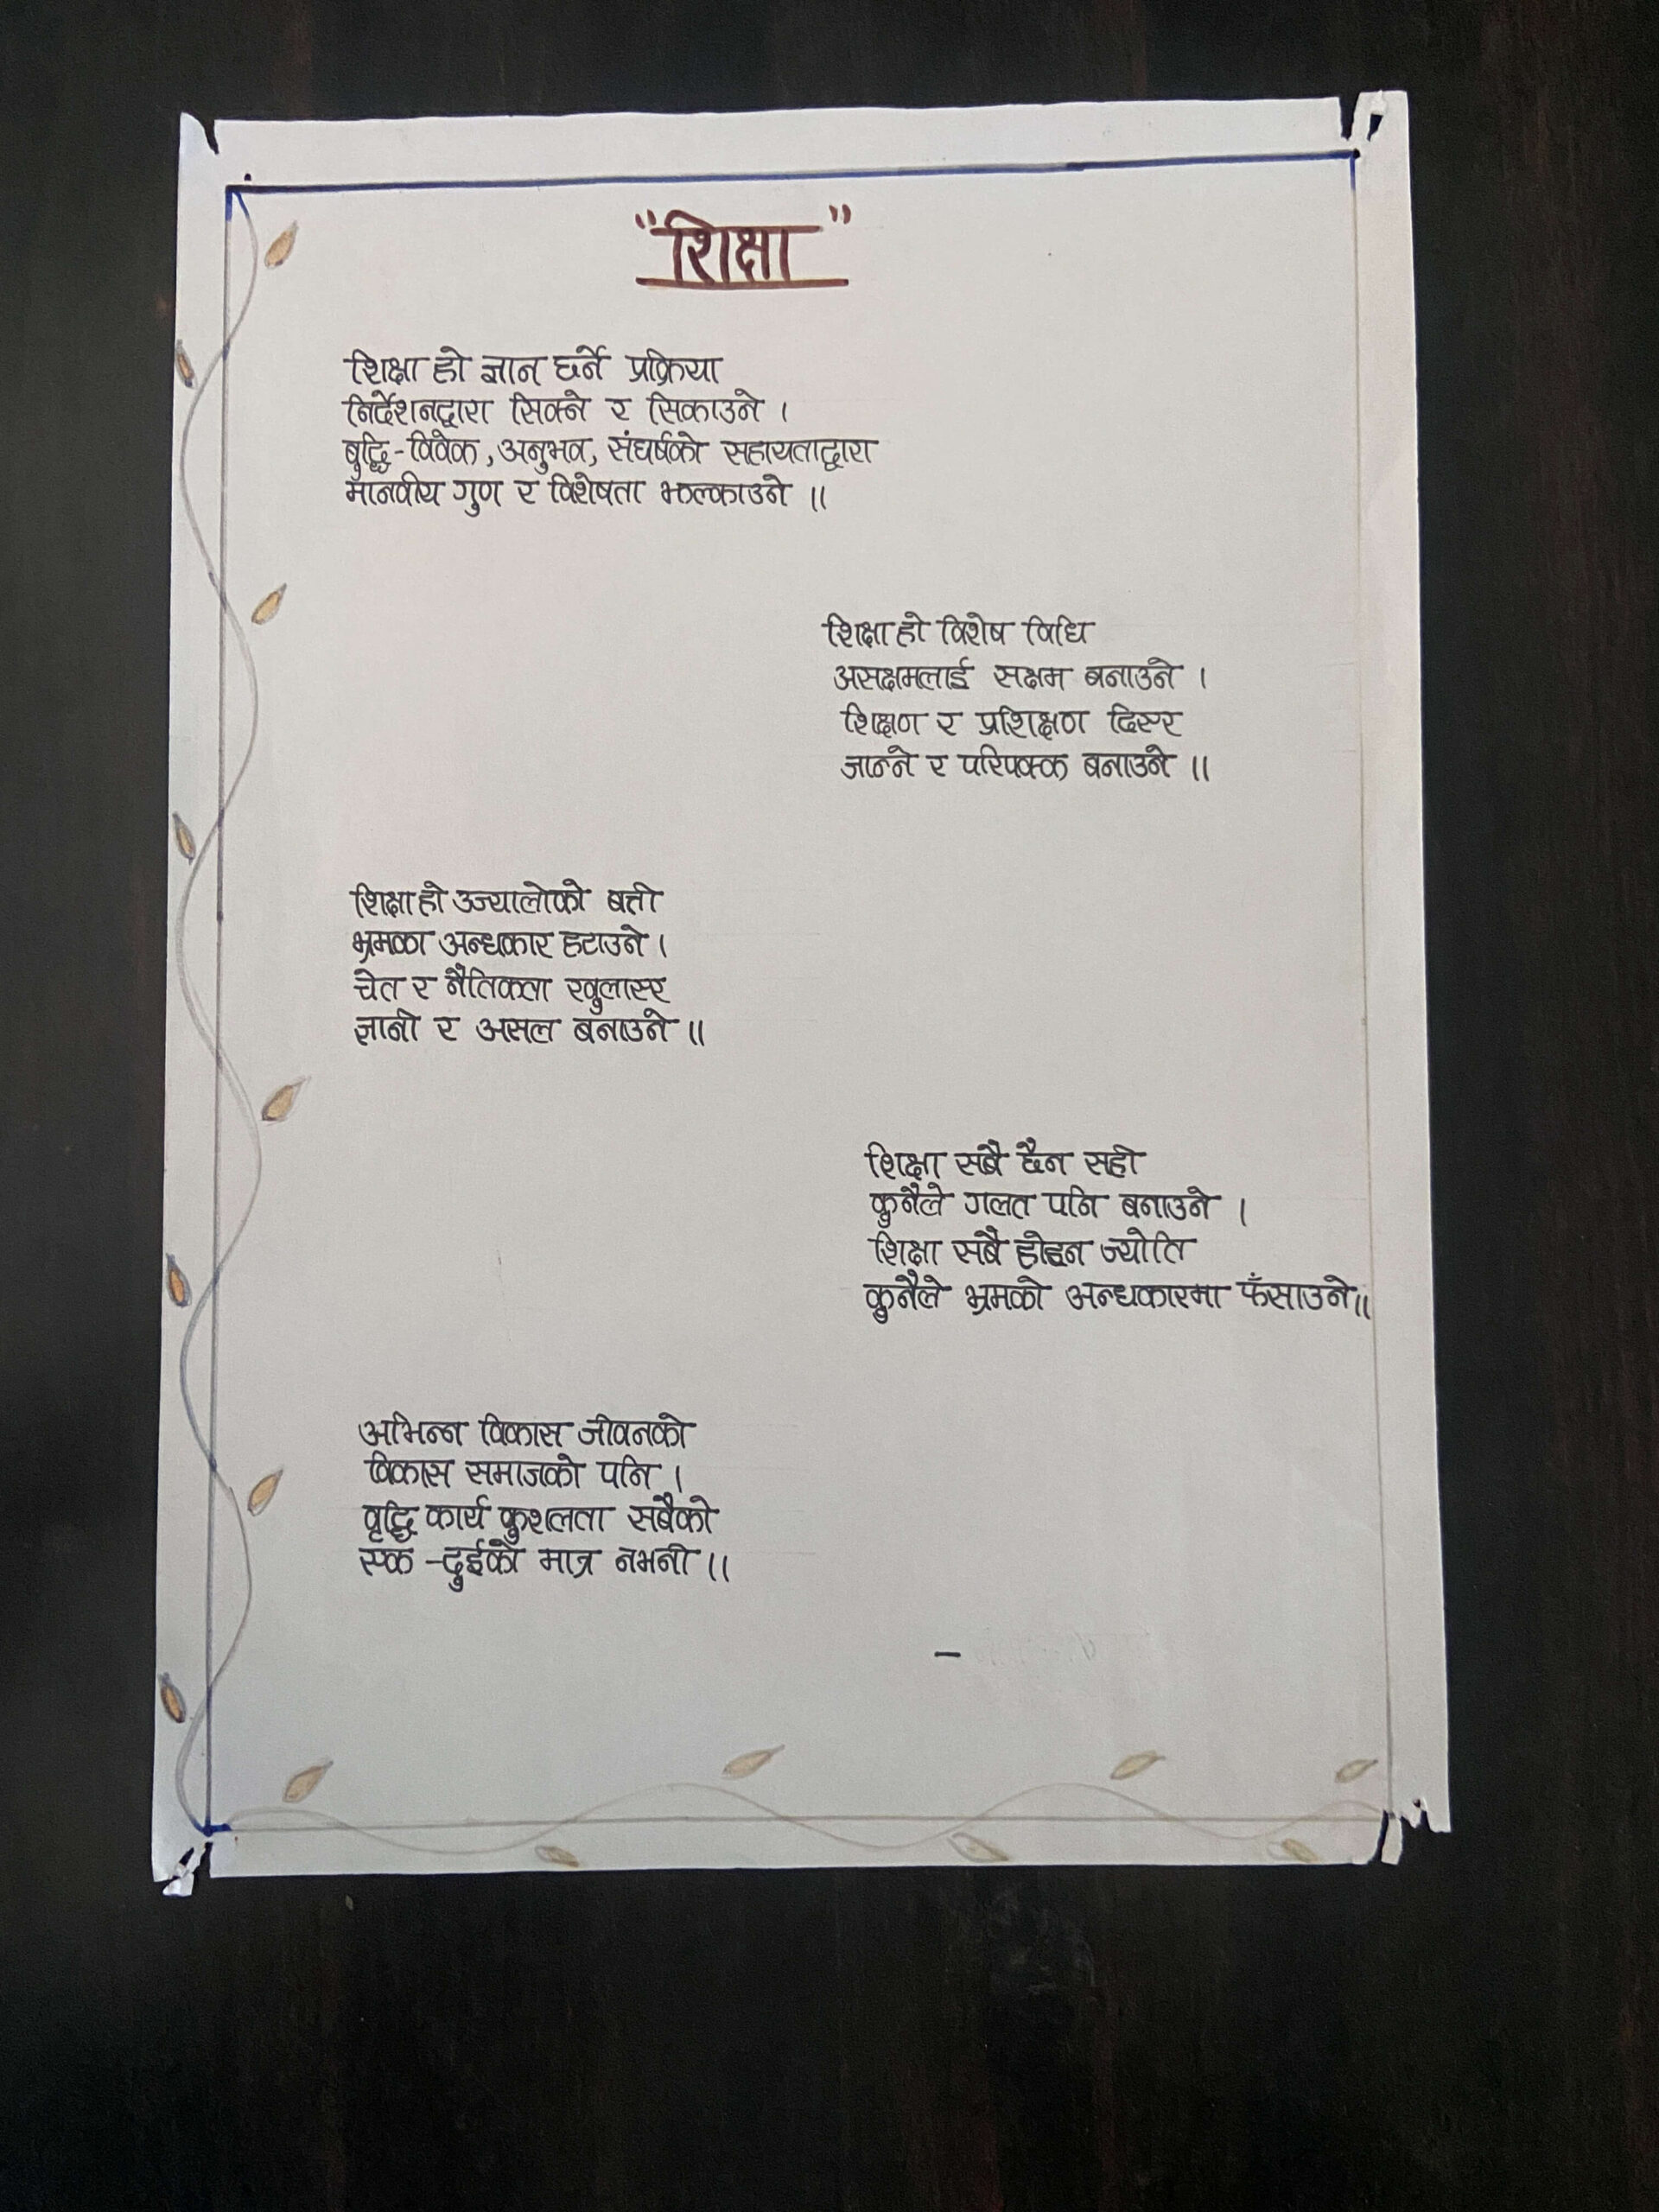 "शिक्षा"
शिक्षा हो ज्ञान छर्ने प्रक्रिया
निर्देशनद्वारा सिक्ने र सिकाउने ।
बुद्धि-विवेक, अनुभव, संघर्षको सहायताद्वारा
मानवीय गुण र विशेषता झल्काउने ॥
शिक्षा हो विशेष विधि
असक्षमलाई सक्षम बनाउने ।
शिक्षण र प्रशिक्षण दिएर
जान्ने र परिपक्क बनाउने ॥
शिक्षा हो उज्यालोको बत्ती
भ्रमका अन्धकार हटाउने ।
चेत र नैतिकता खुलाएर
ज्ञानी र असल बनाउने ॥
शिक्षा सबै छैन सही
कुनैले गलत पनि बनाउने ।
शिक्षा सबै होइन ज्योति
कुनैले भ्रमको अन्धकारमा फँसाउने ॥
अभिन्न विकास जीवनको
विकास समाजको पनि ।
वृद्धि कार्य कुशलता सबैको
एक -दुईको मात्र नभनी ॥
–